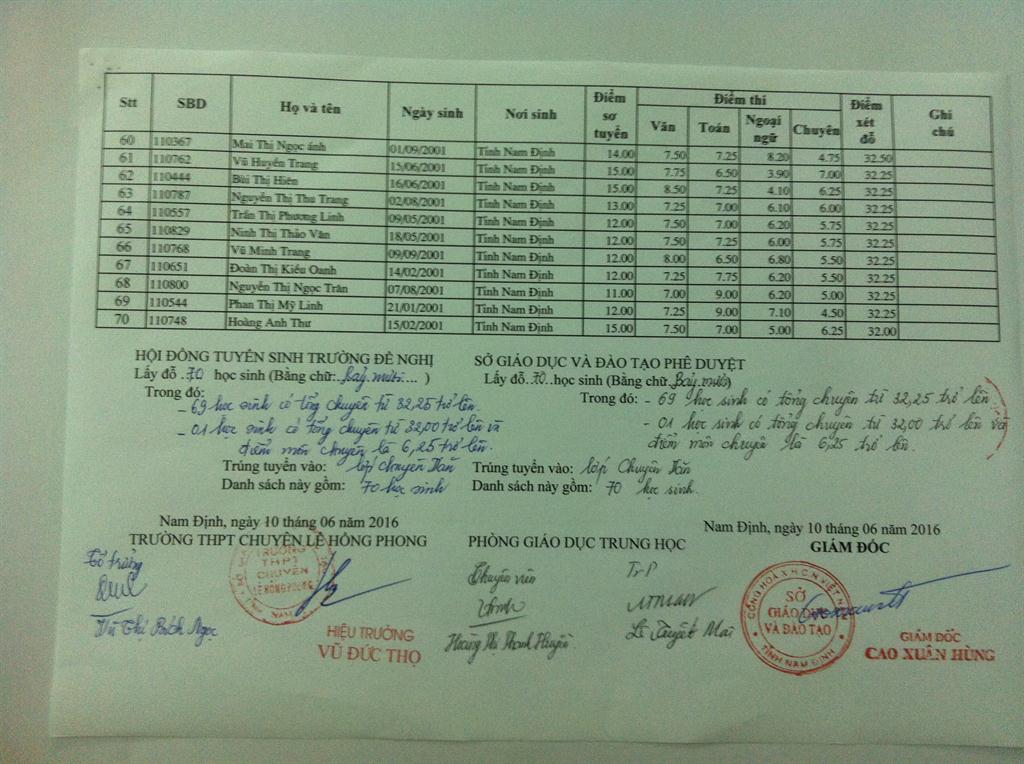 Stt SBD Họ và tên Ngày sinh Nơi sinh Điểm sơ tuyển Điểm thi Điểm xét đỗ Ghi chú
Văn Toán Ngoại ngữ Chuyên
60 110367 Mai Thị Ngọc ánh 01/09/2001 Tỉnh Nam Định 14.00 7.50 7.25 8.20 4.75 32.50
61 110762 Vũ Huyền Trang 15/06/2001 Tỉnh Nam Định 15.00 7.75 6.50 3.90 7.00 32.25
62 110444 Bùi Thị Hiên 16/06/2001 Tỉnh Nam Định 15.00 8.50 7.25 4.10 6.25 32.25
63 110787 Nguyễn Thị Thu Trang 02/08/2001 Tỉnh Nam Định 13.00 7.25 7.00 6.10 6.00 32.25
64 110557 Trần Thị Phương Linh 09/05/2001 Tỉnh Nam Định 12.00 7.50 7.00 6.20 5.75 32.25
65 110829 Ninh Thị Thảo Vân 18/05/2001 Tỉnh Nam Định 12.00 7.50 7.25 6.00 5.75 32.25
66 110768 Vũ Minh Trang 09/09/2001 Tỉnh Nam Định 12.00 8.00 6.50 6.80 5.50 32.25
67 110651 Đoàn Thị Kiều Oanh 14/02/2001 Tỉnh Nam Định 12.00 7.25 7.75 6.20 5.50 32.25
68 110800 Nguyễn Thị Ngọc Trân 07/08/2001 Tỉnh Nam Định 11.00 7.00 9.00 6.20 5.00 32.25
69 110544 Phan Thị Mỹ Linh 21/01/2001 Tỉnh Nam Định 12.00 7.25 9.00 7.10 4.50 32.25
70 110748 Hoàng Anh Thư 15/02/2001 Tỉnh Nam Định 15.00 7.50 7.00 5.00 6.25 32.00
HỘI ĐỒNG TUYỂN SINH TRƯỜNG ĐỀ NGHỊ
Lấy đỗ .70 học sinh (Bằng chữ: Bảy mươi.... )
Trong đó:
- 69 học sinh có tổng chuyên từ 32,25 trở lên.
- 01 học sinh có tổng chuyên từ 32,00 trở lên và
điểm môn chuyên là 6,25 trở lên.
Trúng tuyển vào: lớp chuyên Văn
Danh sách này gồm: 70 học sinh
SỞ GIÁO DỤC VÀ ĐÀO TẠO PHÊ DUYỆT
Lấy đỗ.70..học sinh (Bằng chữ. Bảy mươi)
Trong đó: - 69 học sinh có tổng chuyên từ 32,25 trở lên
- 01 học sinh có tổng chuyên từ 32,00 trở lên và
điểm môn chuyên là 6,25 trở lên.
Trúng tuyển vào: lớp Chuyên Văn
Danh sách này gồm: 70 học sinh.
Nam Định, ngày 10 tháng 06 năm 2016
TRƯỜNG THPT CHUYÊN LÊ HỒNG PHONG
Tổ trưởng
Vũ Thị Bích Ngọc
TRƯỜNG
THPT
CHUYÊN
LÊ HỒNG PHONG
HIỆU TRƯỞNG
VŨ ĐỨC THỌ
PHÒNG GIÁO DỤC TRUNG HỌC
Chuyên viên
Hoàng Thị Thanh Huyền
TrP
Lê Tuyết Mai
Nam Định, ngày 10 tháng 06 năm 2016
GIÁM ĐỐC
CỘNG HOÀ X.H.C.N VIỆT NAM
SỞ
GIÁO DỤC
VÀ ĐÀO TẠO
TỈNH NAM ĐỊNH
GIÁM ĐỐC
CAO XUÂN HÙNG